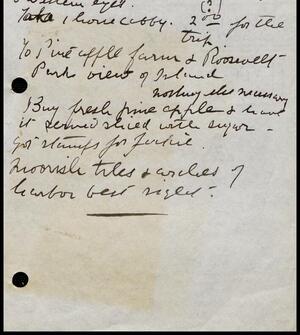 Take 1 horse cabby. 2 00 (?) for the
trip
To Pineapple farm & Roosevelt
Park view of Island
nothing else necessary
Buy fresh pine apple & have
it served sliced with sugar -
Got stamps for
Moorish tiles & arches of
harbor best sight -